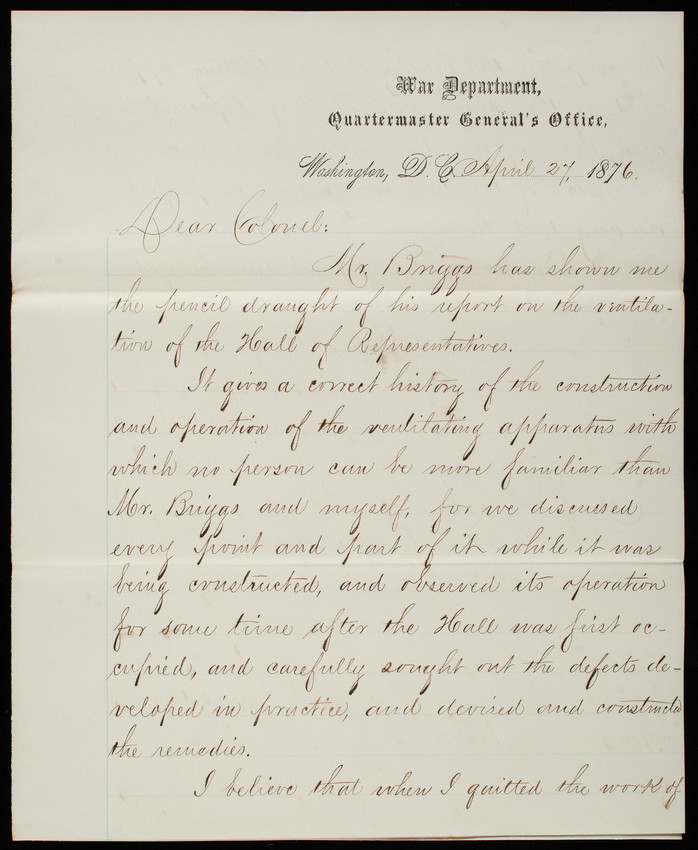 War Department,
Quartermaster General's Office,
Washington, D. C. April 27, 1876.
Dear Colonel:
Mr. Briggs has shown me
the pencil draught of his report on the ventila-
tion of the Hall of Representatives.
It gives a correct history of the construction
and operation of the ventilating apparatus with
which no person can be more familiar than
Mr. Briggs and myself, for we discussed
every point and part of it while it was
being constructed, and observed its operation
for some time after the Hall was first oc-
cupied, and carefully sought out the defects de-
veloped in practice, and devised and constructed
the remedies.
I believe that when I quitted the work of